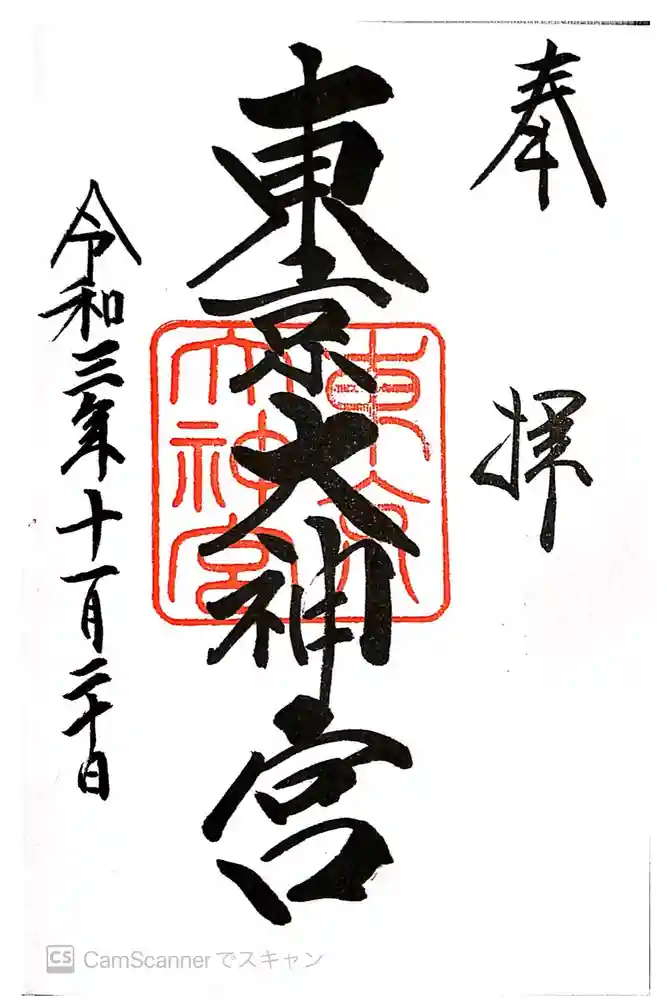 奉拝
東京大神宮
東京
大神宮
令和三年十一月二十日
CS CamScannerでスキャン